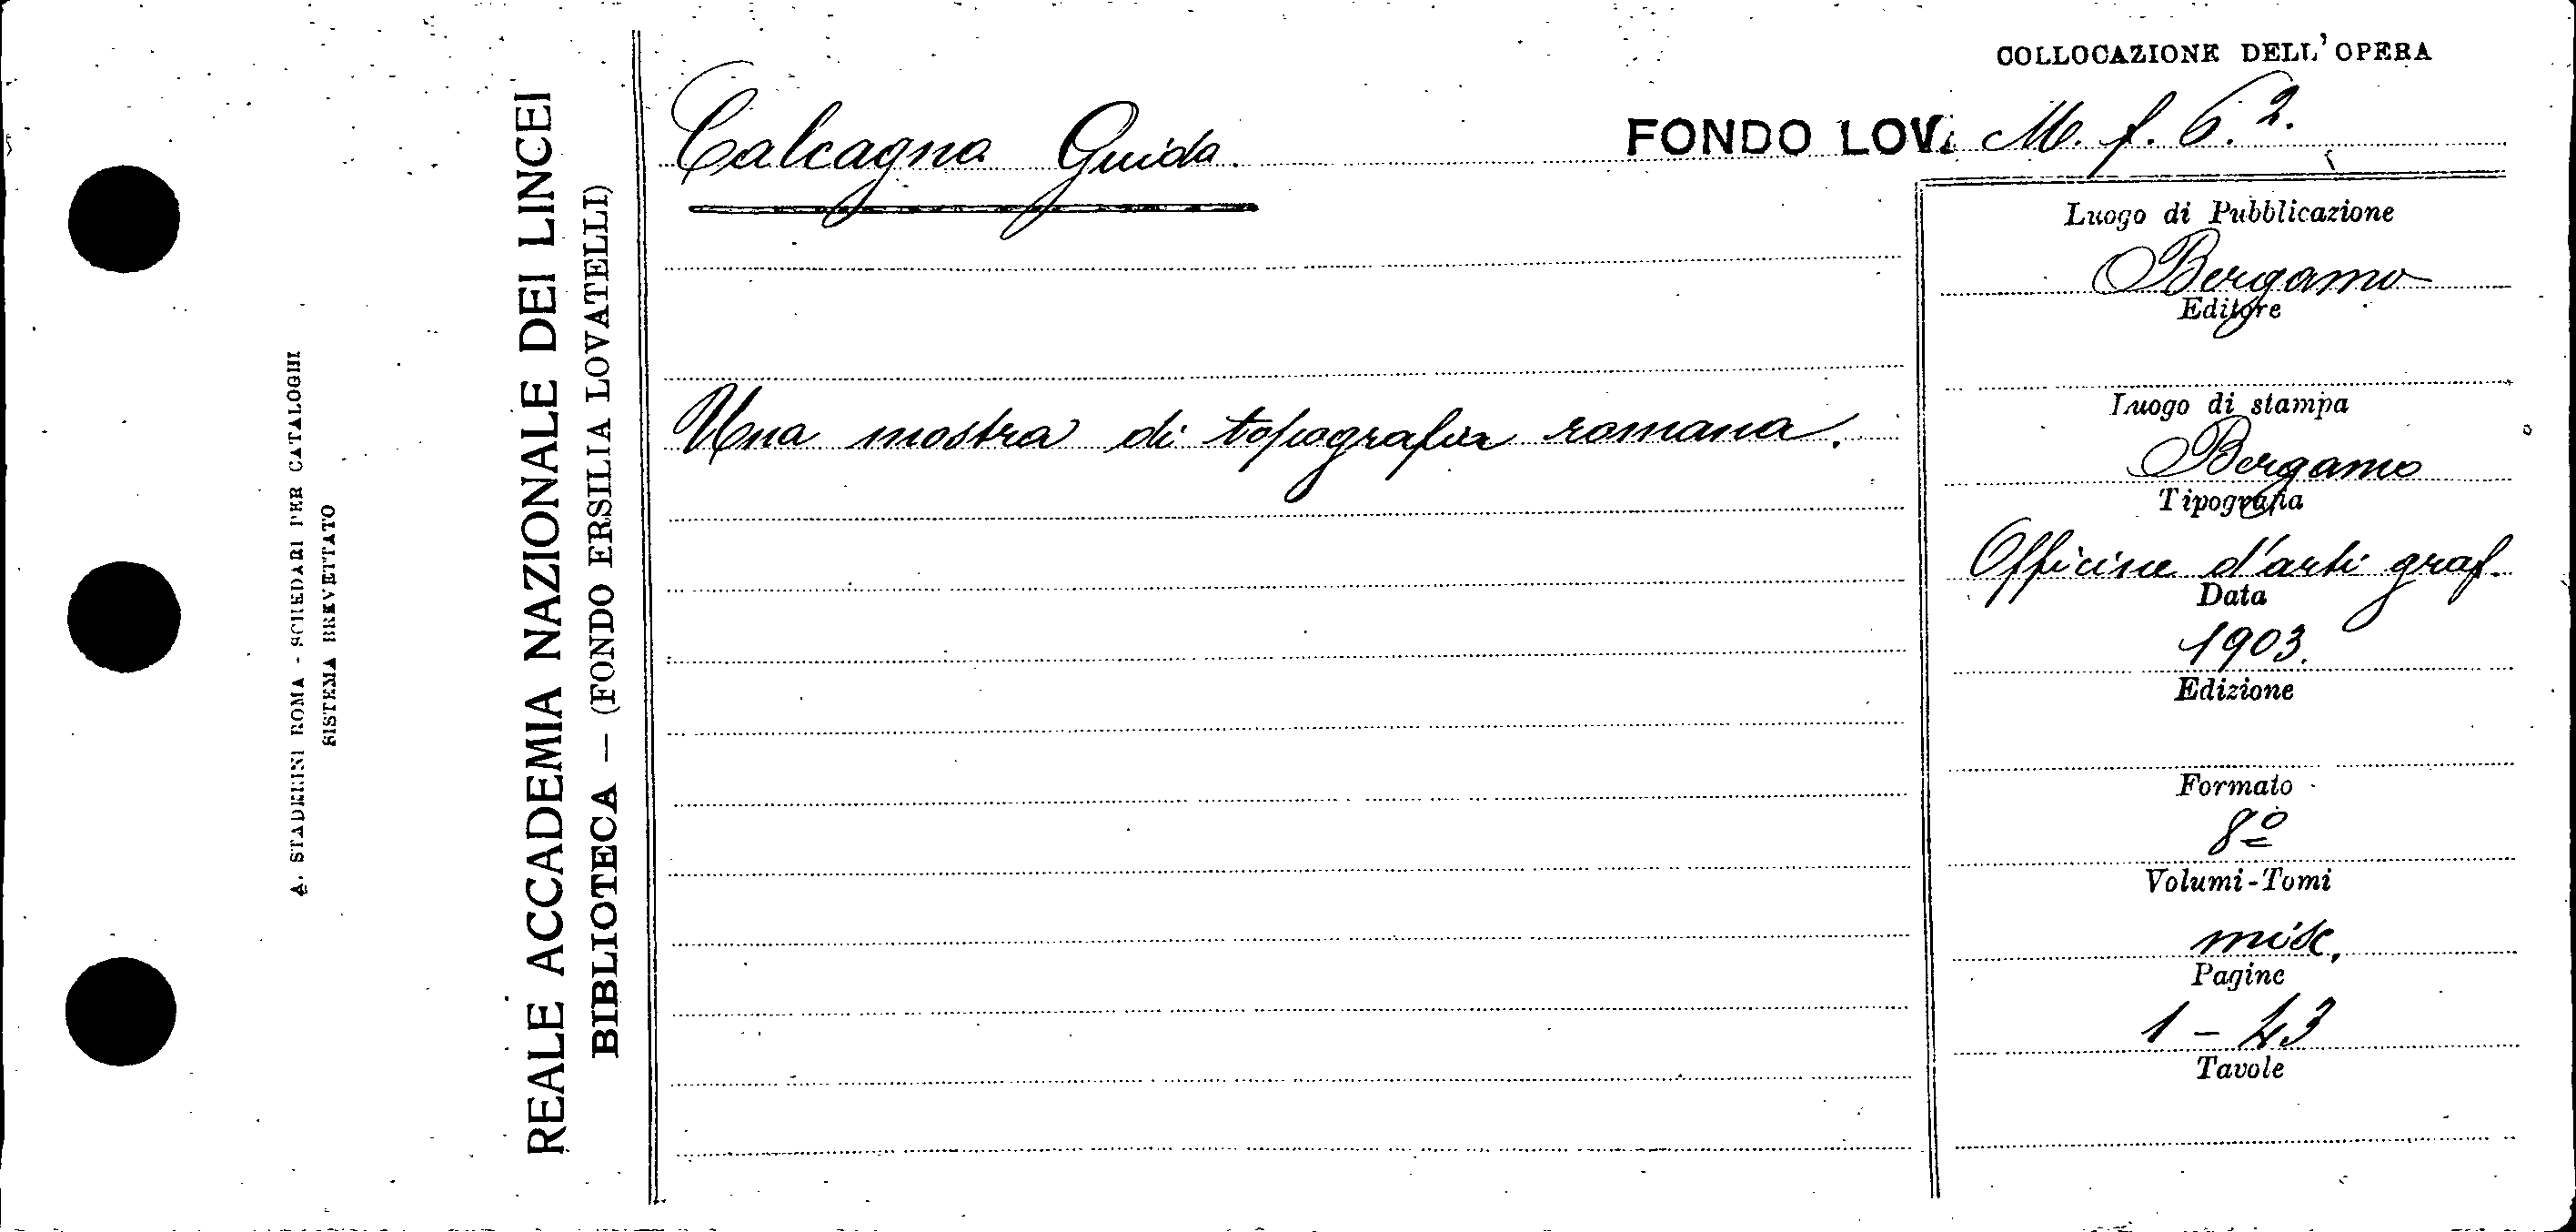 COLLOCAZIONE DELL'OPERA
Calcagna Guida.
FONDO LOV. M. f. 6.2.
Una mostra di topografia romana.
Luogo di Pubblicazione
Bergamo
Editore
Luogo di stampa
Bergamo
Tipografia
Officine d'arti graf.
Data
1903.
Edizione
Formato
8º
Volumi-Tomi
misc.
Pagine
1 - 43
Tavole
REALE ACCADEMIA NAZIONALE DEI LINCEI
BIBLIOTECA — (FONDO ERSILIA LOVATELLI)
A. STADERINI ROMA - SCHEDARI PER CATALOGHI
SISTEMA BREVETTATO